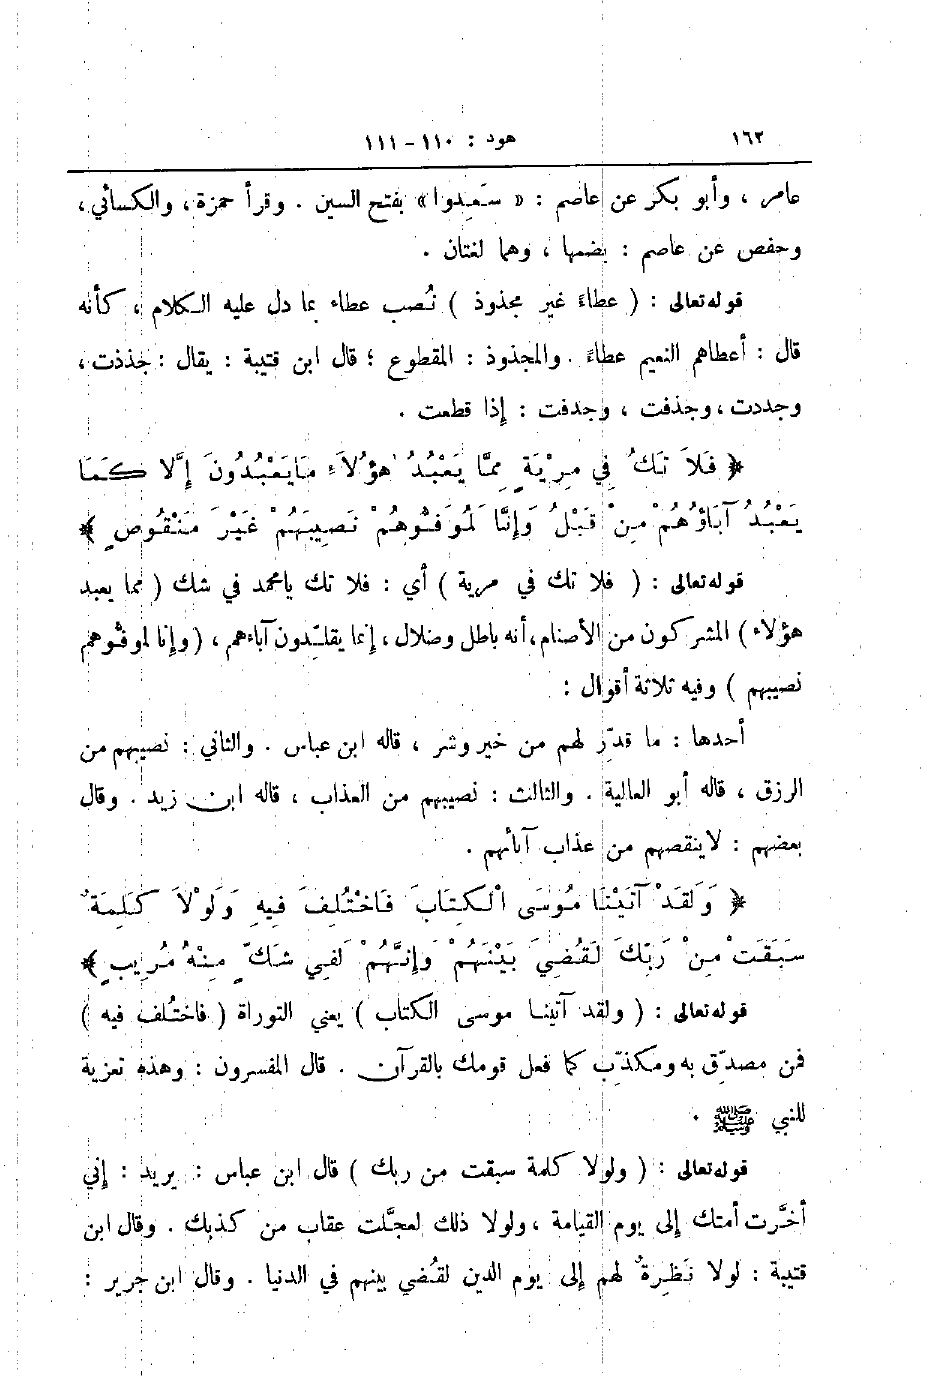 ١٦٢ هود : ١١٠ - ١١١
عامر ، وأبو بكر عن عاصم : « سَعِدوا » بفتح السين . وقرأ حمزة ، والكسائي ،
وحفص عن عاصم : بضمها ، وهما لغتان .
قوله تعالى : ( عطاءً غير مجذوذ ) نُصب عطاء بما دل عليه الكلام ، كأنه
قال : أعطاهم النعيم عطاءً . والمجذوذ : المقطوع ؛ قال ابن قتيبة : يقال : جذذت ،
وجددت ، وجذفت ، وجدفت : إذا قطعت .
﴿ فَلاَ تَكُ فِي مِرْيَةٍ مِمَّا يَعْبُدُ هٰؤُلاَءِ مَا يَعْبُدُونَ إِلَّا كَمَا
يَعْبُدُ آبَاؤُهُمْ مِنْ قَبْلُ وَإِنَّا لَمُوَفُّوهُمْ نَصِيبَهُمْ غَيْرَ مَنْقُوصٍ ﴾
قوله تعالى : ( فلا تك في مرية ) أي : فلا تك يا محمد في شك ( مما يعبد
هؤلاء ) المشركون من الأصنام ، أنه باطل وضلال ، إنما يقلِّدون آباءهم ، ( وإنا لموفُّوهم
نصيبهم ) وفيه ثلاثة أقوال :
أحدها : ما قدِّر لهم من خير وشر ، قاله ابن عباس . والثاني : نصيبهم من
الرزق ، قاله أبو العالية . والثالث : نصيبهم من العذاب ، قاله ابن زيد . وقال
بعضهم : لا ينقصهم من عذاب آبائهم .
﴿ وَلَقَدْ آتَيْنَا مُوسَى الْكِتَابَ فَاخْتُلِفَ فِيهِ وَلَوْلاَ كَلِمَةٌ
سَبَقَتْ مِنْ رَبِّكَ لَقُضِيَ بَيْنَهُمْ وَإِنَّهُمْ لَفِي شَكٍّ مِنْهُ مُرِيبٍ ﴾
قوله تعالى : ( ولقد آتينا موسى الكتاب ) يعني التوراة ( فاختُلف فيه )
فمن مصدِّق به ومكذِّب كما فعل قومك بالقرآن . قال المفسرون : وهذه تعزية
للنبي ﷺ .
قوله تعالى : ( ولولا كلمة سبقت من ربك ) قال ابن عباس : يريد : إني
أخَّرت أمتك إلى يوم القيامة ، ولولا ذلك لعجَّلت عقاب من كذبك . وقال ابن
قتيبة : لولا نَظِرةٌ لهم إلى يوم الدين لقُضي بينهم في الدنيا . وقال ابن جرير :